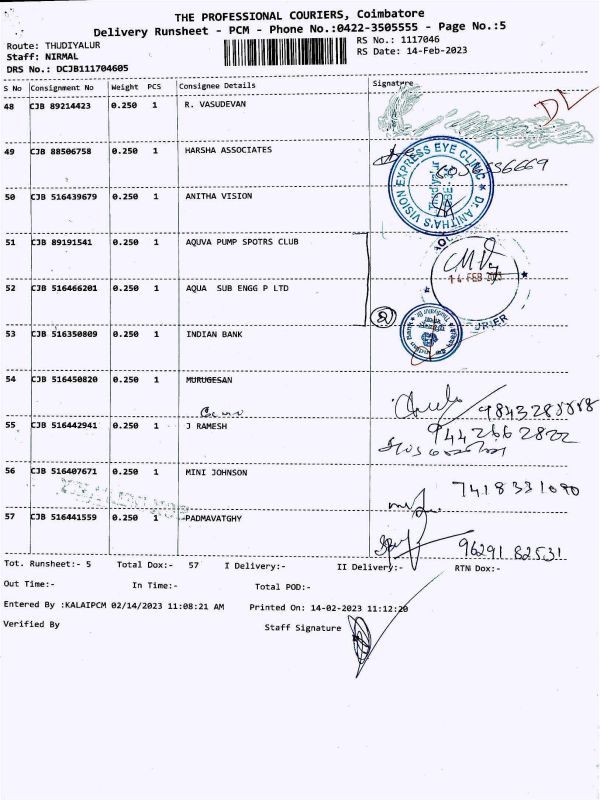 THE PROFESSIONAL COURIERS, Coimbatore
Delivery Runsheet - PCM - Phone No.:0422-3505555 - Page No.:5
Route: THUDIYALUR
RS No.: 1117046
Staff: NIRMAL
RS Date: 14-Feb-2023
DRS No.: DCJB111704605
S No Consignment No Weight PCS Consignee Details Signature
48 CJB 89214423 0.250 1 R. VASUDEVAN
DL
49 CJB 88506758 0.250 1 HARSHA ASSOCIATES
Dr. ANITHA'S VISION EXPRESS EYE CLINIC
50 CJB 516439679 0.250 1 ANITHA VISION
51 CJB 89191541 0.250 1 AQUVA PUMP SPOTRS CLUB
14 FEB 2023
52 CJB 516466201 0.250 1 AQUA SUB ENGG P LTD
2
53 CJB 516350809 0.250 1 INDIAN BANK
54 CJB 516450820 0.250 1 MURUGESAN
55 CJB 516442941 0.250 1 J RAMESH
9442662822
56 CJB 516407671 0.250 1 MINI JOHNSON
7418331090
57 CJB 516441559 0.250 1 PADMAVATGHY
9629182531
Tot. Runsheet:- 5 Total Dox:- 57 I Delivery:- II Delivery:- RTN Dox:-
Out Time:- In Time:- Total POD:-
Entered By :KALAIPCM 02/14/2023 11:08:21 AM Printed On: 14-02-2023 11:12:20
Verified By Staff Signature